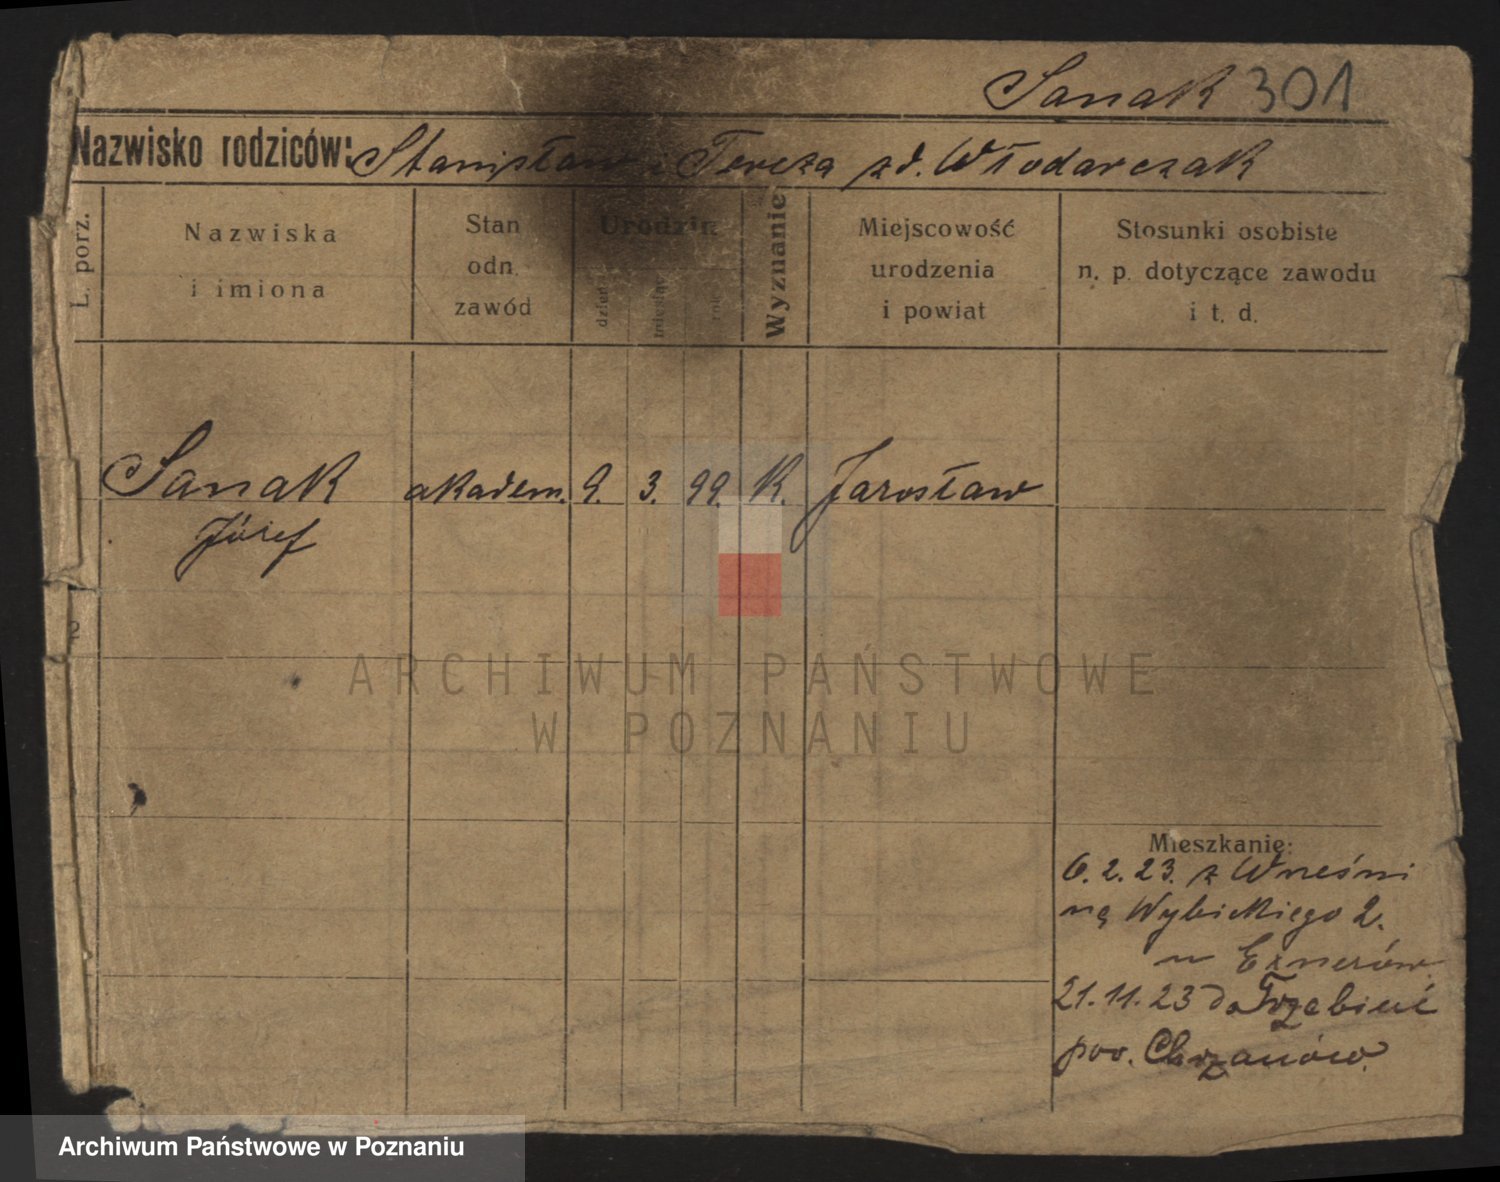 Sanak 301
Nazwisko rodziców: Stanisław i Tereza zd. Włodarczak
L. porz.
Nazwiska
i imiona
Stan
odn.
zawód
Urodzin
dzień
miesiąc
rok
Wyznanie
Miejscowość
urodzenia
i powiat
Stosunki osobiste
n. p. dotyczące zawodu
i t. d.
Sanak akadem. 9. 3. 99. K. Jarosław
Józef
2
ARCHIWUM PAŃSTWOWE
W POZNANIU
Mieszkanie:
6.2.23. z Wrześni
na Wybickiego 2.
21.11.23 do Trzebini
pow. Chrzanów.
Archiwum Państwowe w Poznaniu